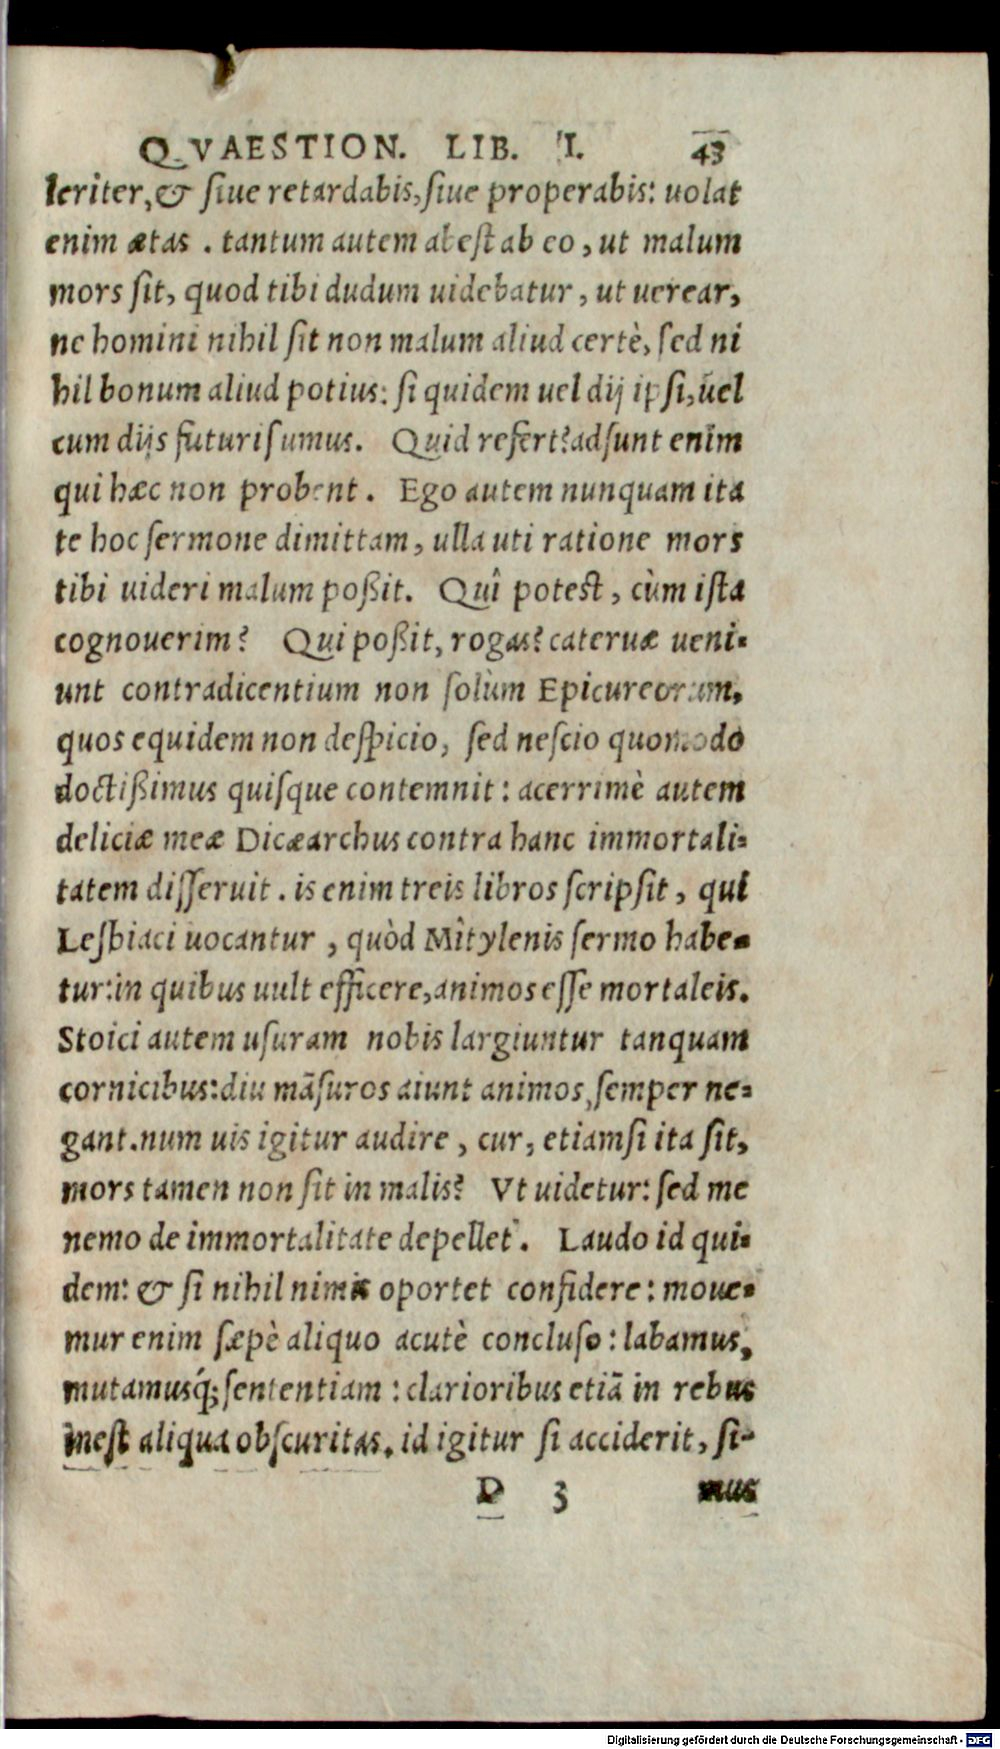 QVAESTION. LIB. I. 43
leriter, & ſiue retardabis, ſiue properabis: uolat
enim ætas . tantum autem abeſt ab eo, ut malum
mors ſit, quod tibi dudum uidebatur, ut uerear,
ne homini nihil ſit non malum aliud certè, ſed ni
hil bonum aliud potius: ſi quidem uel dij ipſi, uel
cum dijs futuri ſumus. Quid refert? adſunt enim
qui hæc non probent. Ego autem nunquam ita
te hoc ſermone dimittam, ulla uti ratione mors
tibi uideri malum poßit. Quî poteſt, cùm iſta
cognouerim? Qui poßit, rogas? cateruæ ueni-
unt contradicentium non ſolùm Epicureorum,
quos equidem non deſpicio, ſed neſcio quomodo
doctißimus quiſque contemnit: acerrimè autem
deliciæ meæ Dicæarchus contra hanc immortali-
tatem diſſeruit. is enim treis libros ſcripſit, qui
Lesbiaci uocantur, quòd Mîtylenis ſermo habe-
tur: in quibus uult efficere, animos eſſe mortaleis.
Stoici autem uſuram nobis largiuntur tanquam
cornicibus: diu mãſuros aiunt animos, ſemper ne-
gant. num uis igitur audire, cur, etiamſi ita ſit,
mors tamen non ſit in malis? Vt uidetur: ſed me
nemo de immortalitate depellet. Laudo id qui-
dem: & ſi nihil nimis oportet confidere: moue-
mur enim ſæpè aliquo acutè concluſo: labamus,
mutamusq́; ſententiam: clarioribus etiã in rebus
ineſt aliqua obſcuritas. id igitur ſi acciderit, ſi-
D 3 mus
Digitalisierung gefördert durch die Deutsche Forschungsgemeinschaft - DFG